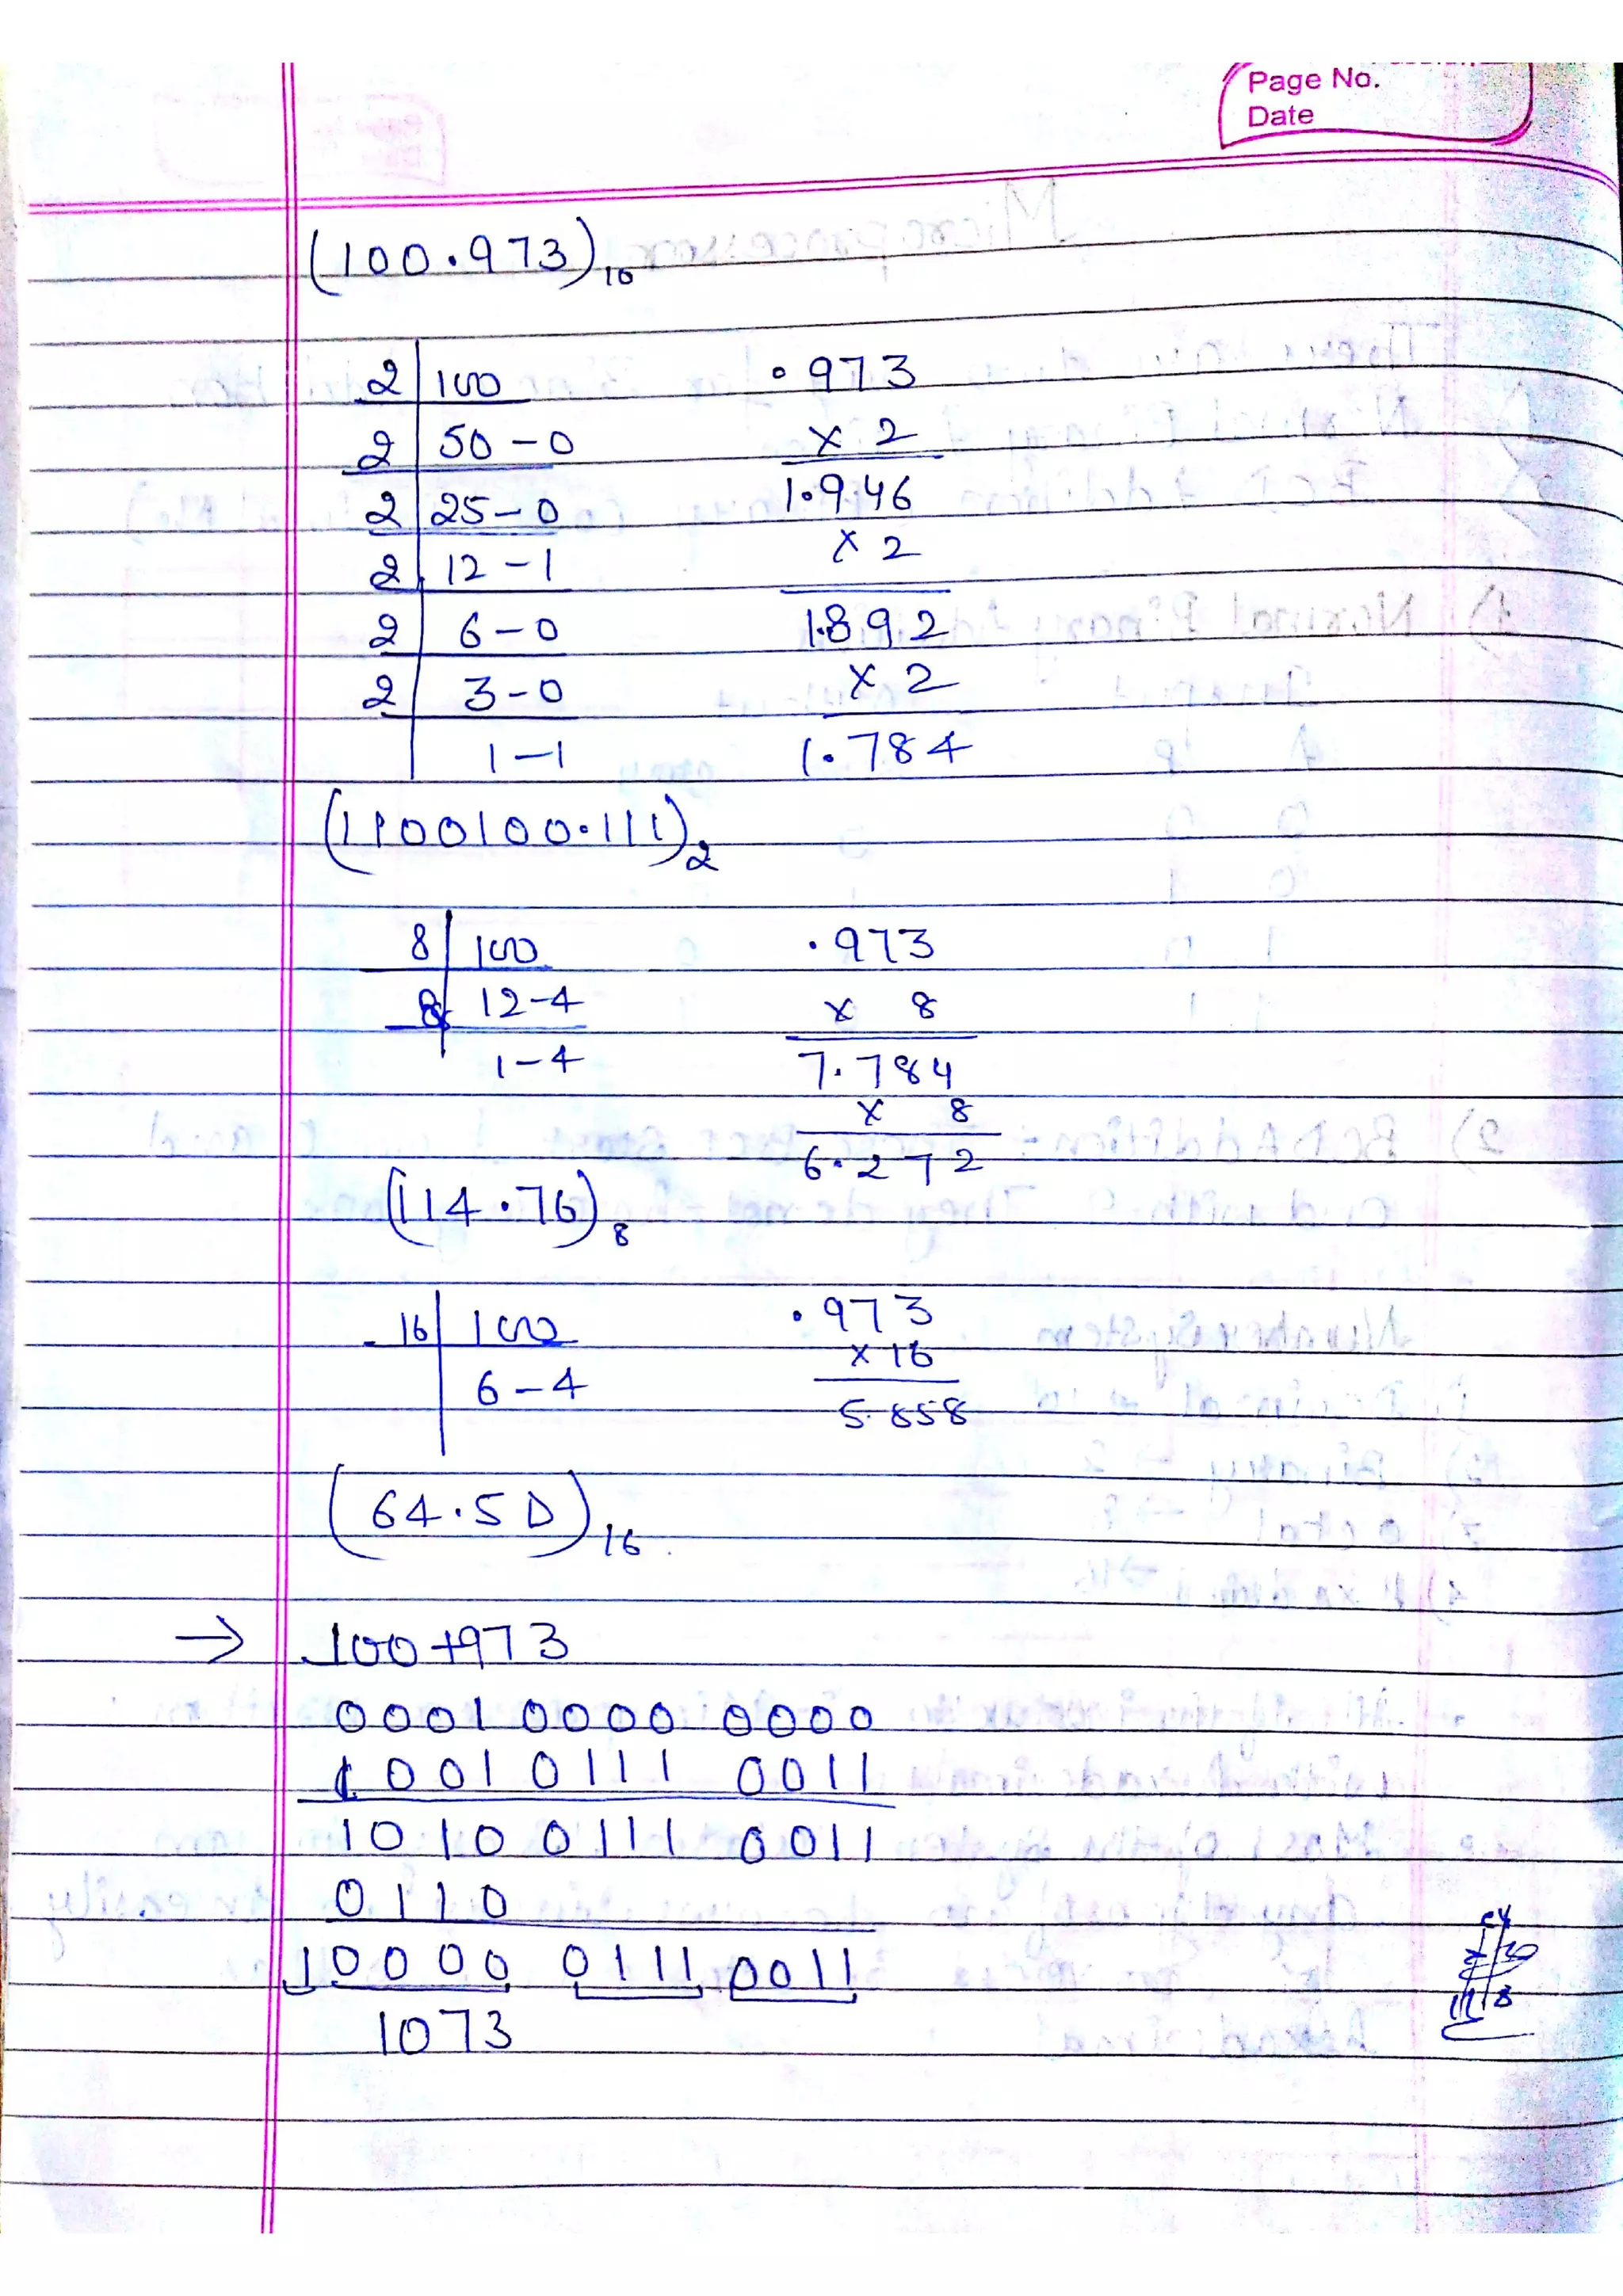 Page No.
Date
(100.973)16
2 | 100
2 | 50 - 0
2 | 25 - 0
2 | 12 - 1
2 | 6 - 0
2 | 3 - 0
1 - 1
.973
x 2
1.946
x 2
1.892
x 2
1.784
(1100100.111)2
8 | 100
8 | 12 - 4
1 - 4
.973
x 8
7.784
x 8
6.272
(114.76)8
16 | 100
6 - 4
.973
x 16
5.858
(64.5D)16
→ 100+973
0001 0000 0000
1001 0111 0011
1010 0111 0011
0110
1 0000 0111 0011
1073